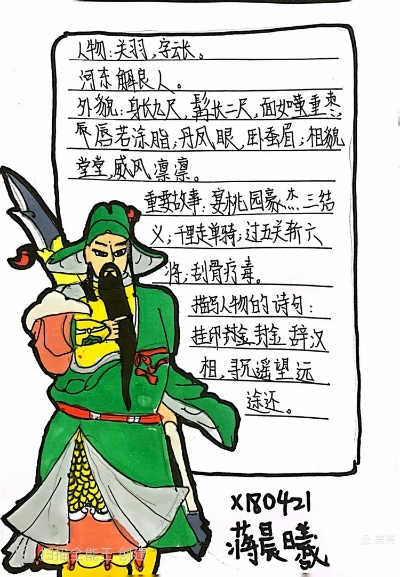 人物:关羽,字云长。
河东解良人。
外貌:身长九尺,髯长二尺,面如重枣,
唇若涂脂;丹凤眼,卧蚕眉;相貌
堂堂,威风凛凛。
重要故事:宴桃园豪杰三结
义;千里走单骑;过五关斩六
将;刮骨疗毒。
描写人物的诗句:
挂印封金封金辞汉
相,寻兄遥望远
途还。
X180421
蒋晨曦
扫描全能王 创建
美篇